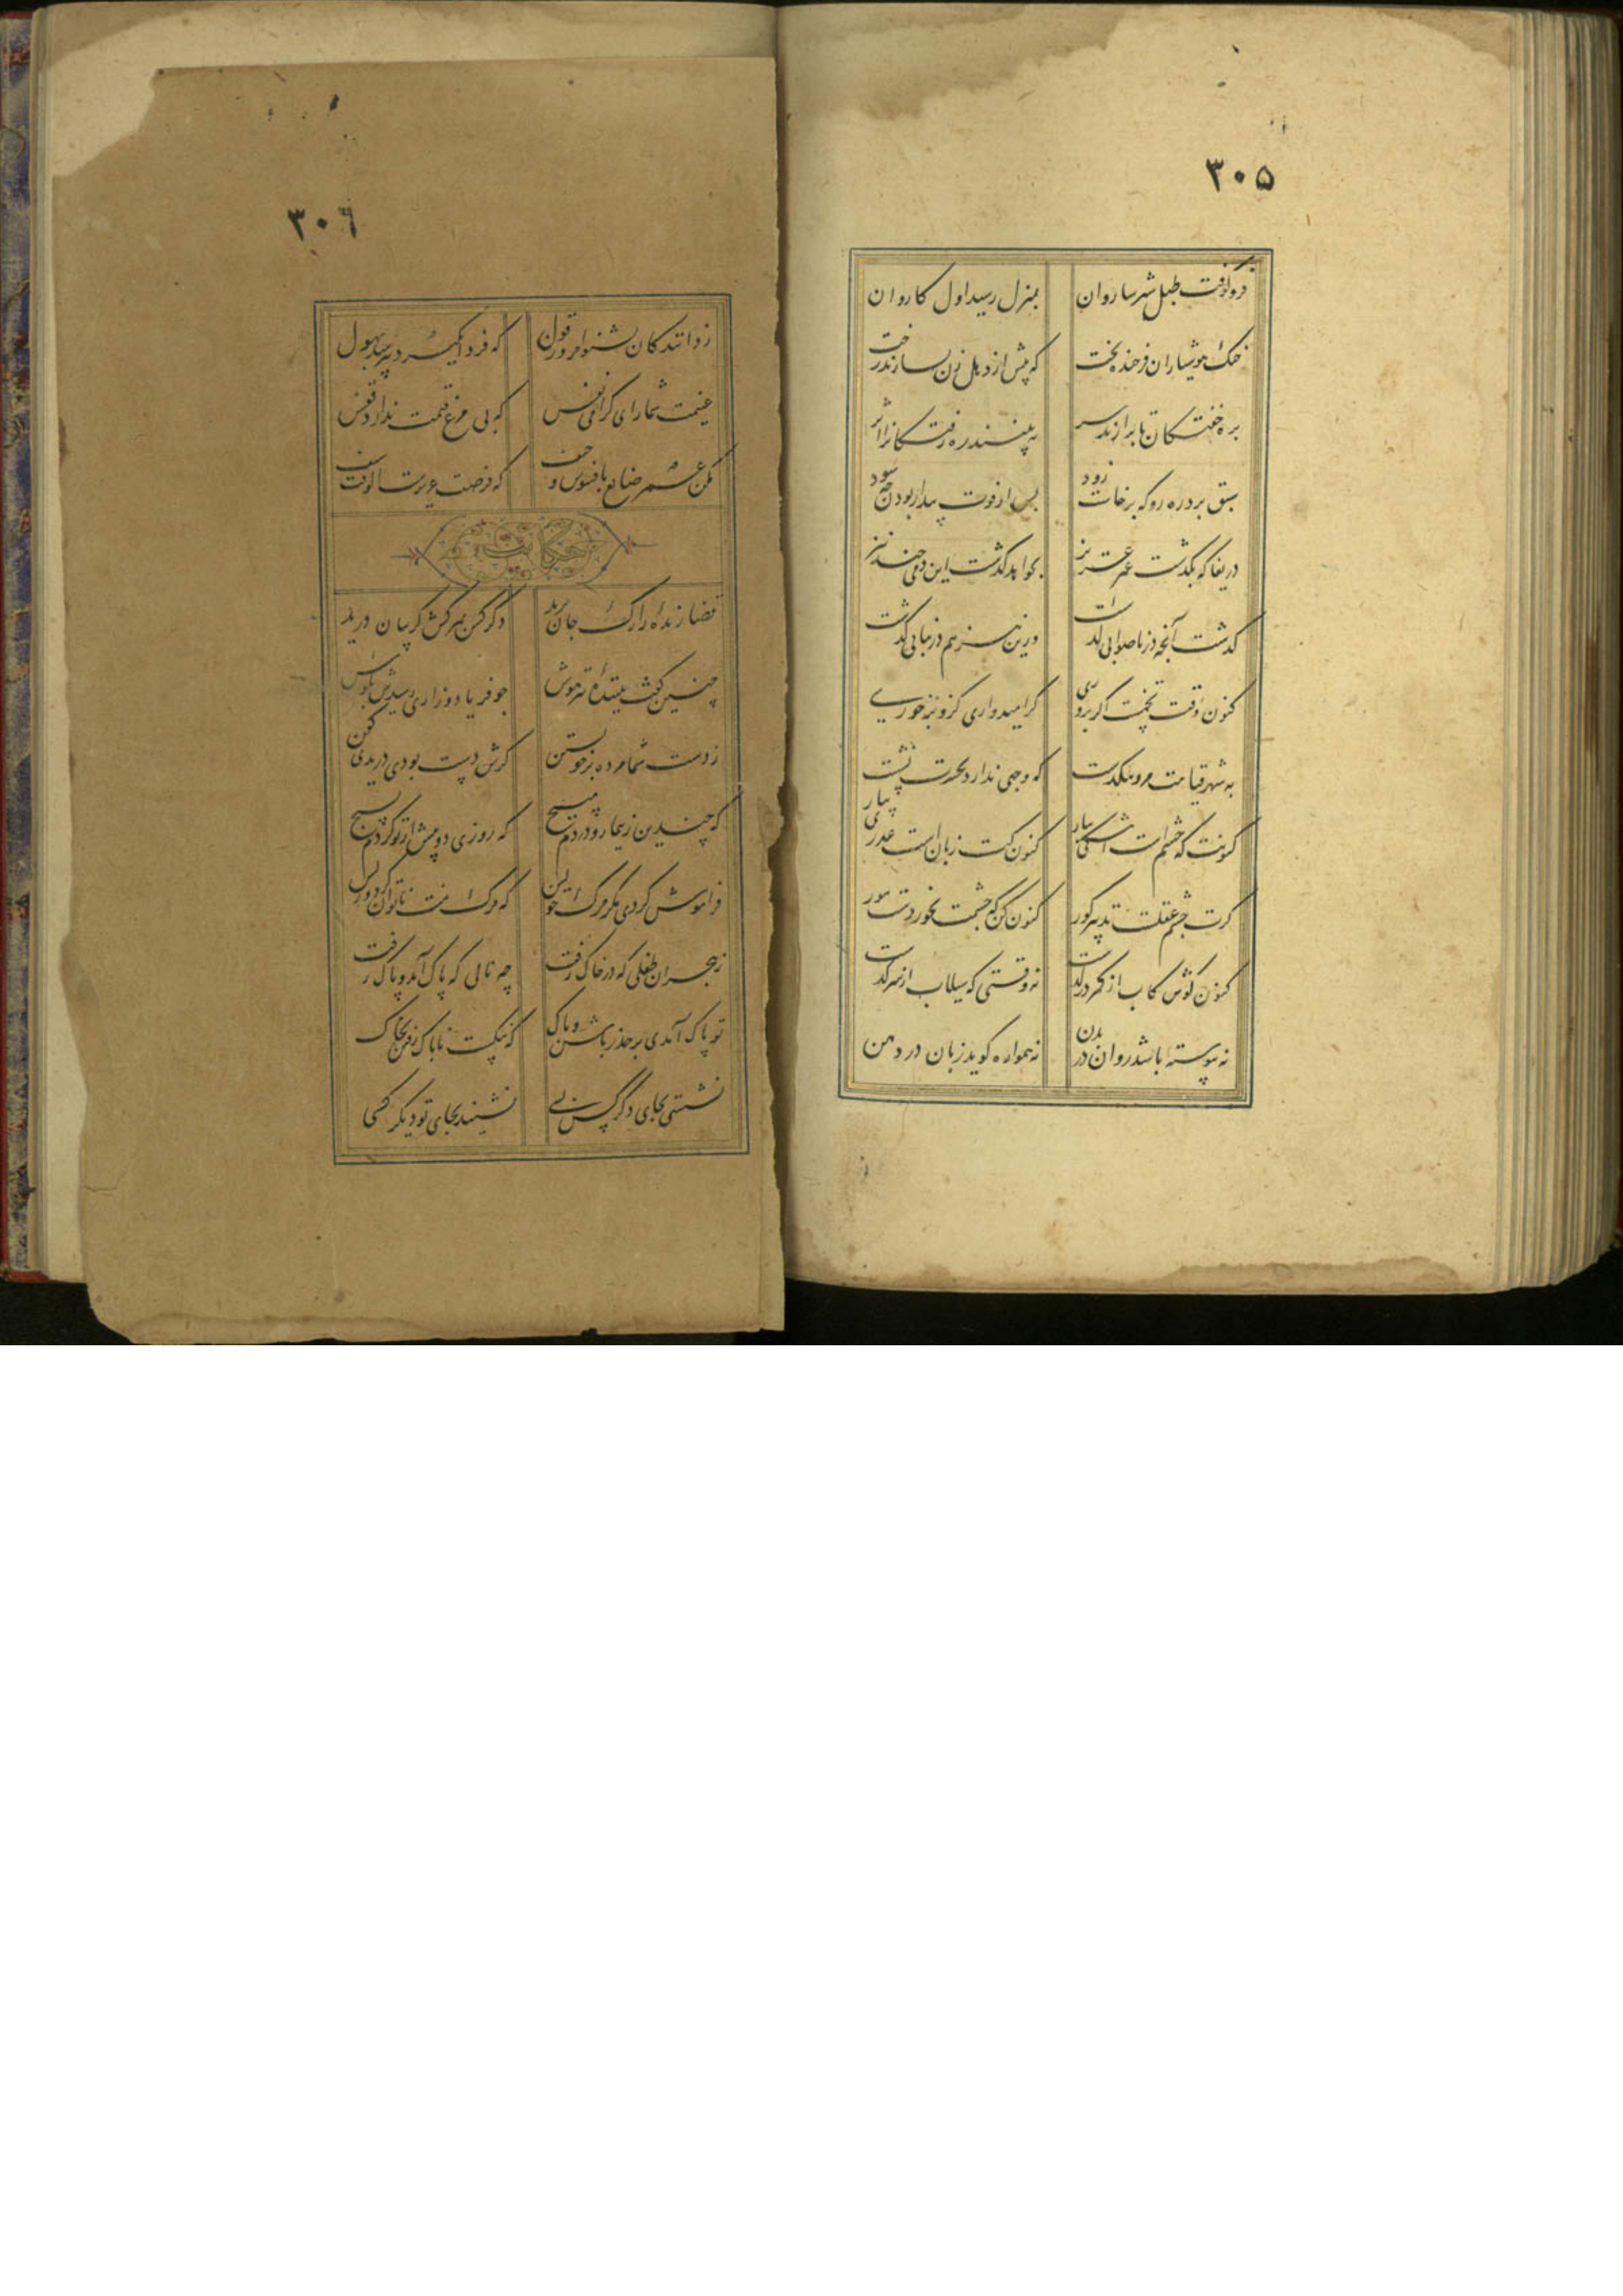 ۳۰۵
فرو کوفت طبل شتر ساروان بمنزل رسید اول کاروان
خنک هوشیاران فرخنده بخت که پیش از دهل زن بسازند رخت
بره خفتکان تا برآرند سر نه بینند ره رفتکانرا اثر
سبق برد رهرو که برخاست زود پس از فوت بیدار بودن چه سود
دریغا که بگذشت عمر عزیز بخواهد گذشت این دمی چند نیز
گذشت آنچه در ناصوابی گذشت ورین نیز هم درنیابی گذشت
کنون وقت تخمست اگر پروری گر امیدواری که خرمن خوری
به شهر قیامت مرو تنگدست که وجهی ندارد بحسرت نشست
کنونت که چشم است اشکی ببار کنون کت زبان است عذری بیار
گرت چشم عقلست تدبیر گور کنون کن که چشمت نخوردست مور
کنون کوش کاب از کمر درگذشت نه وقتی که سیلاب از سر گذشت
نه پیوسته باشد روان در بدن نه همواره گوید زبان در دهن
۳۰٦
ز دانندگان بشنو امروز قول که فردا نکیرت بپرسد بهول
غنیمت شمار ای گرامی نفس که بی مرغ قیمت ندارد قفس
مکن عمر ضایع بافسوس و حیف که فرصت عزیزست الوقت سیف
حکایت
قضا زنده را رگ جان برید دگر کس بمرگش گریبان درید
چنین گفت بیننده تیزهوش چو فریاد و زاری رسیدش بگوش
ز دست شما مرده بر خویشتن گرش دست بودی دریدی کفن
که چندین ز تیمار و دردم مپیچ که روزی دو پیش از تو کردم بسیج
فراموش کردی مگر مرگ خویش که مرگ منت ناتوان کرد و ریش
ز هجران طفلی که در خاک رفت چه نالی که پاک آمد و پاک رفت
تو پاک آمدی بر حذر باش و پاک که ننگست ناپاک رفتن بخاک
نشستی بجای دگر کس بسی نشیند بجای تو دیگر کسی